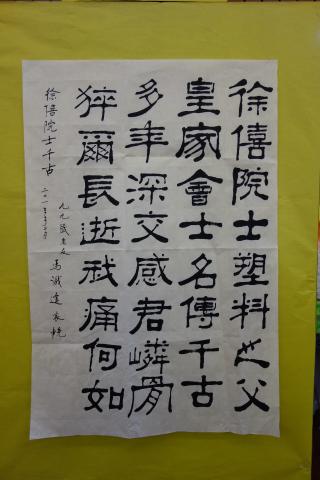 徐僖院士塑料之父
皇家會士名傳千古
多年深交感君嶙骨
猝爾長逝我痛何如
徐僖院士千古
九九歲老友
馬識途哀輓